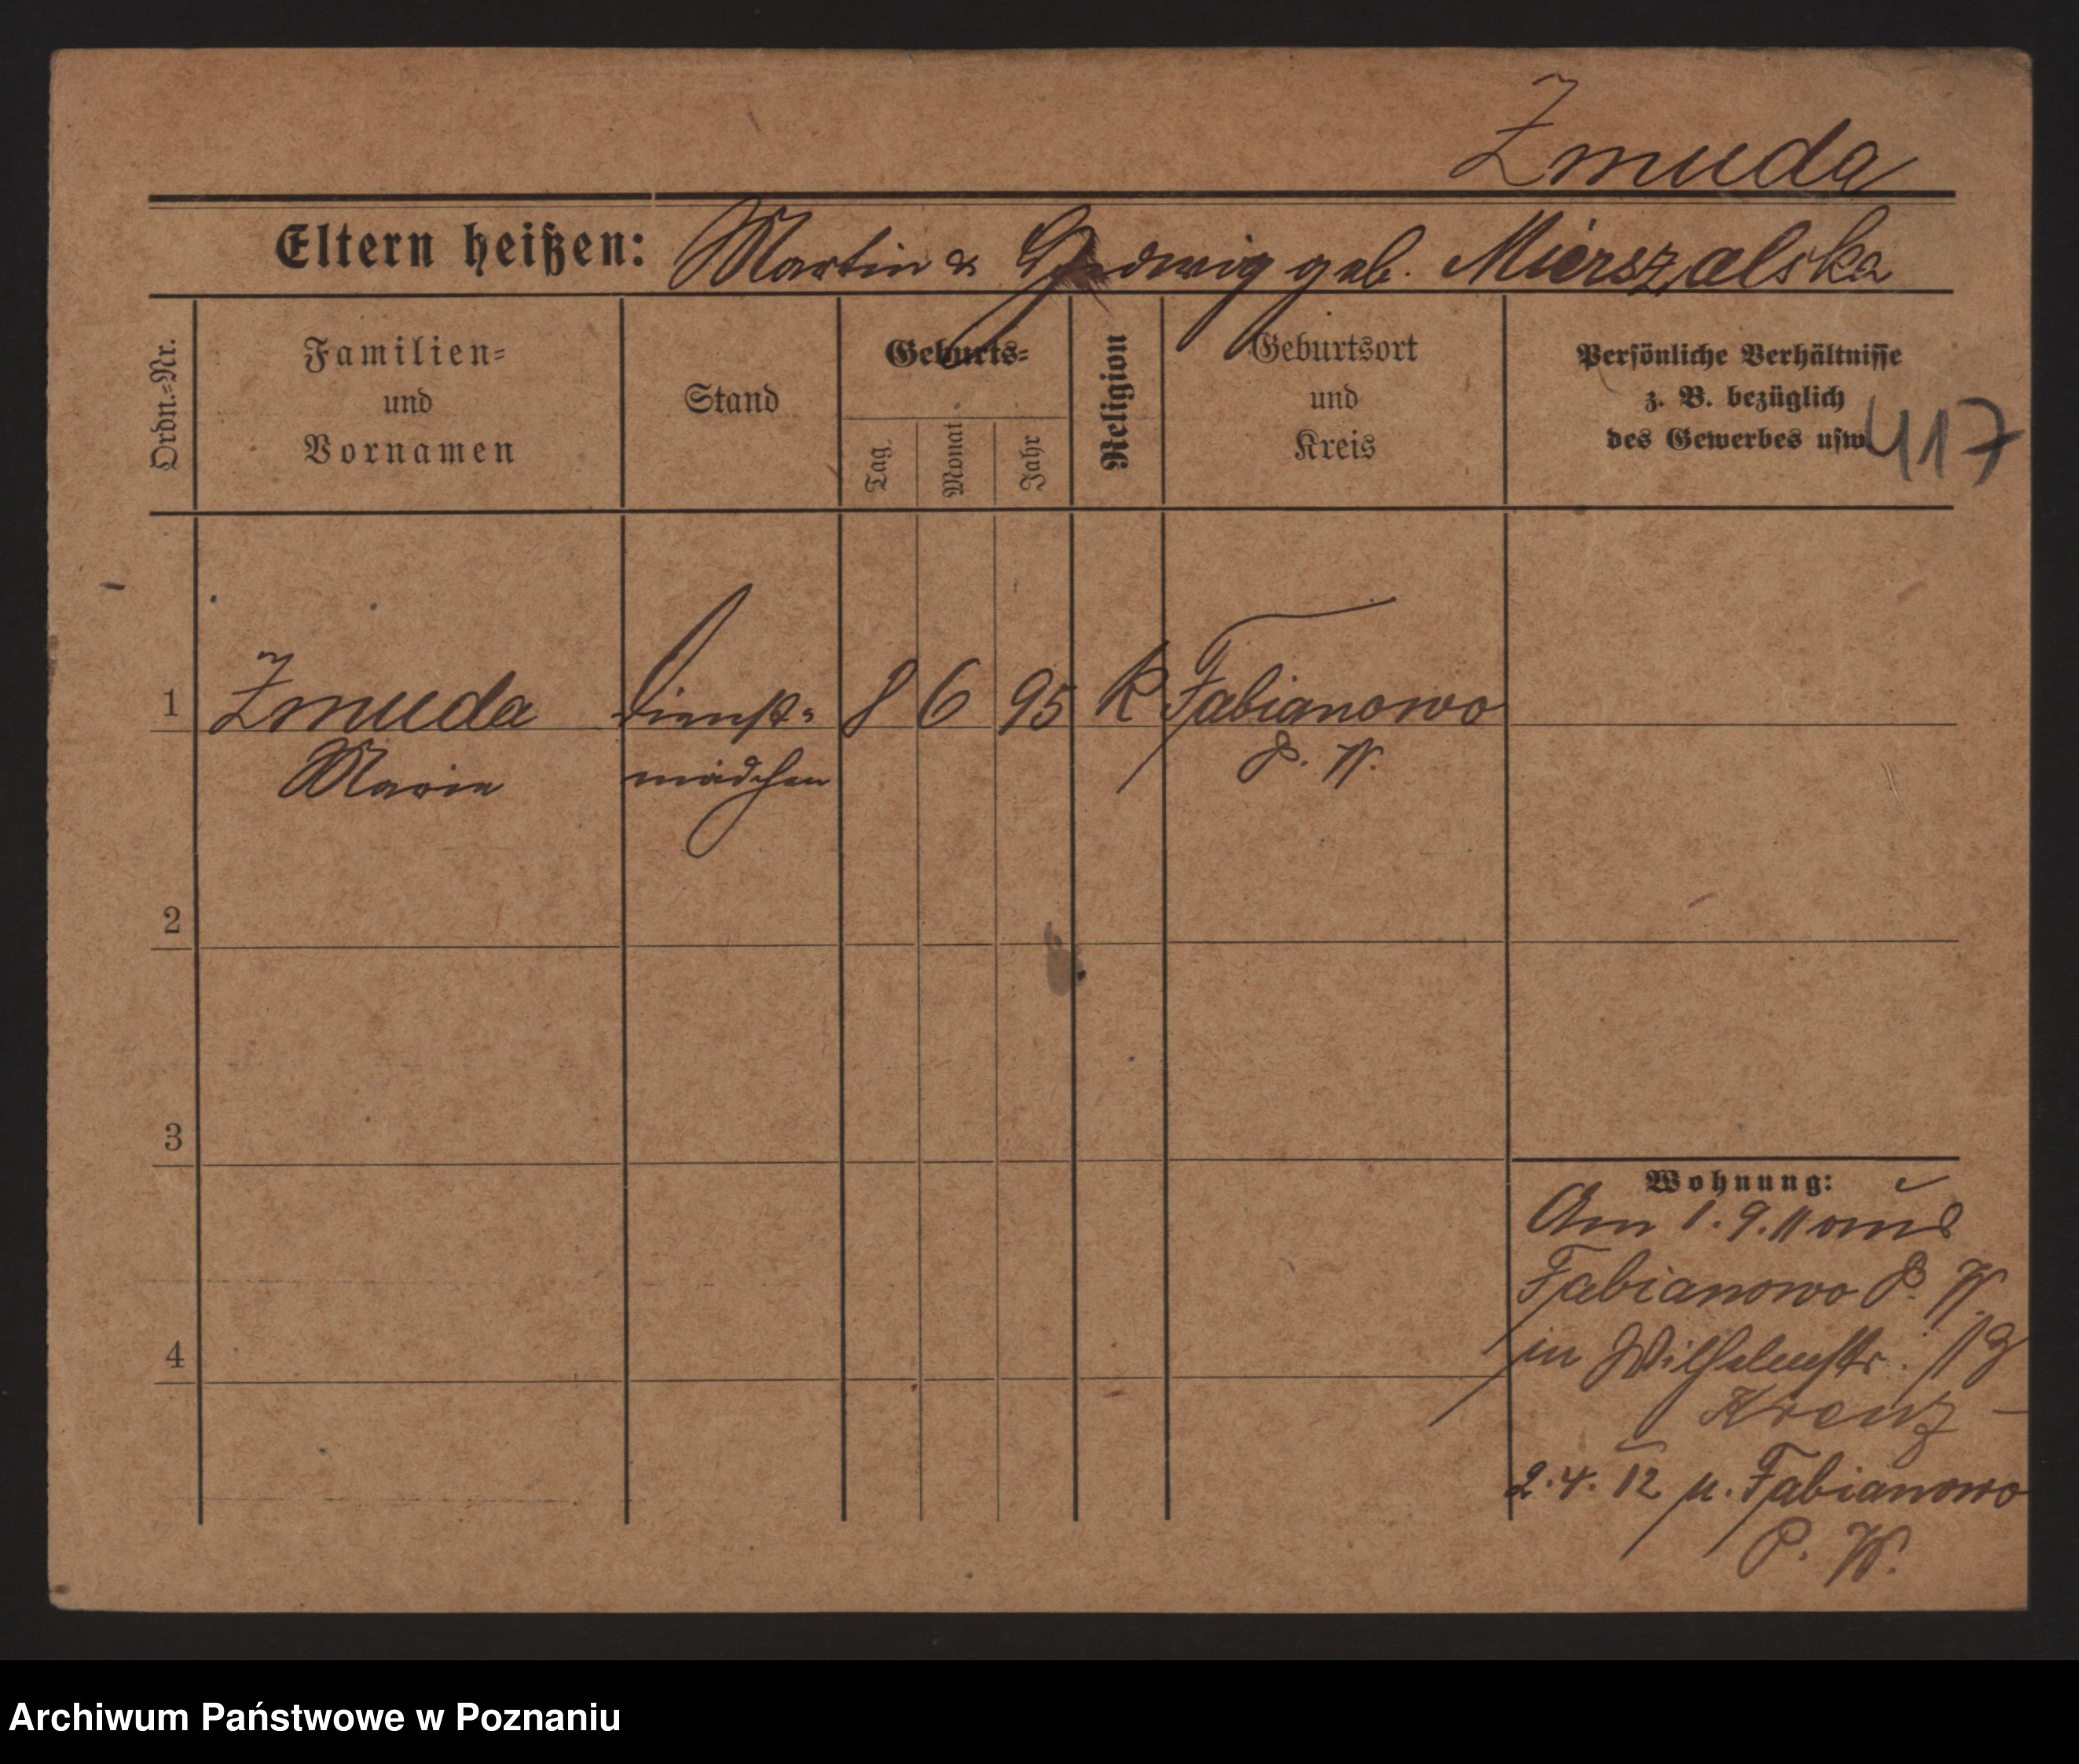 Zmuda
Eltern heißen: Martin & Hedwig geb. Mierszalska
Ordn.-Nr.
Familien-
und
Vornamen
Stand
Geburts-
Tag
Monat
Jahr
Religion
Geburtsort
und
Kreis
Persönliche Verhältnisse
z. B. bezüglich
des Gewerbes usw.
417
1 Zmuda Dienst- 8 6 95 k Fabianowo
Marie mädchen P. W.
2
3
4
Wohnung:
Am 1. 9. 11 aus
Fabianowo P. W.
in Wilhelmstr.
Krenz
2. 4. 12 n. Fabianowo
P. W.
Archiwum Państwowe w Poznaniu